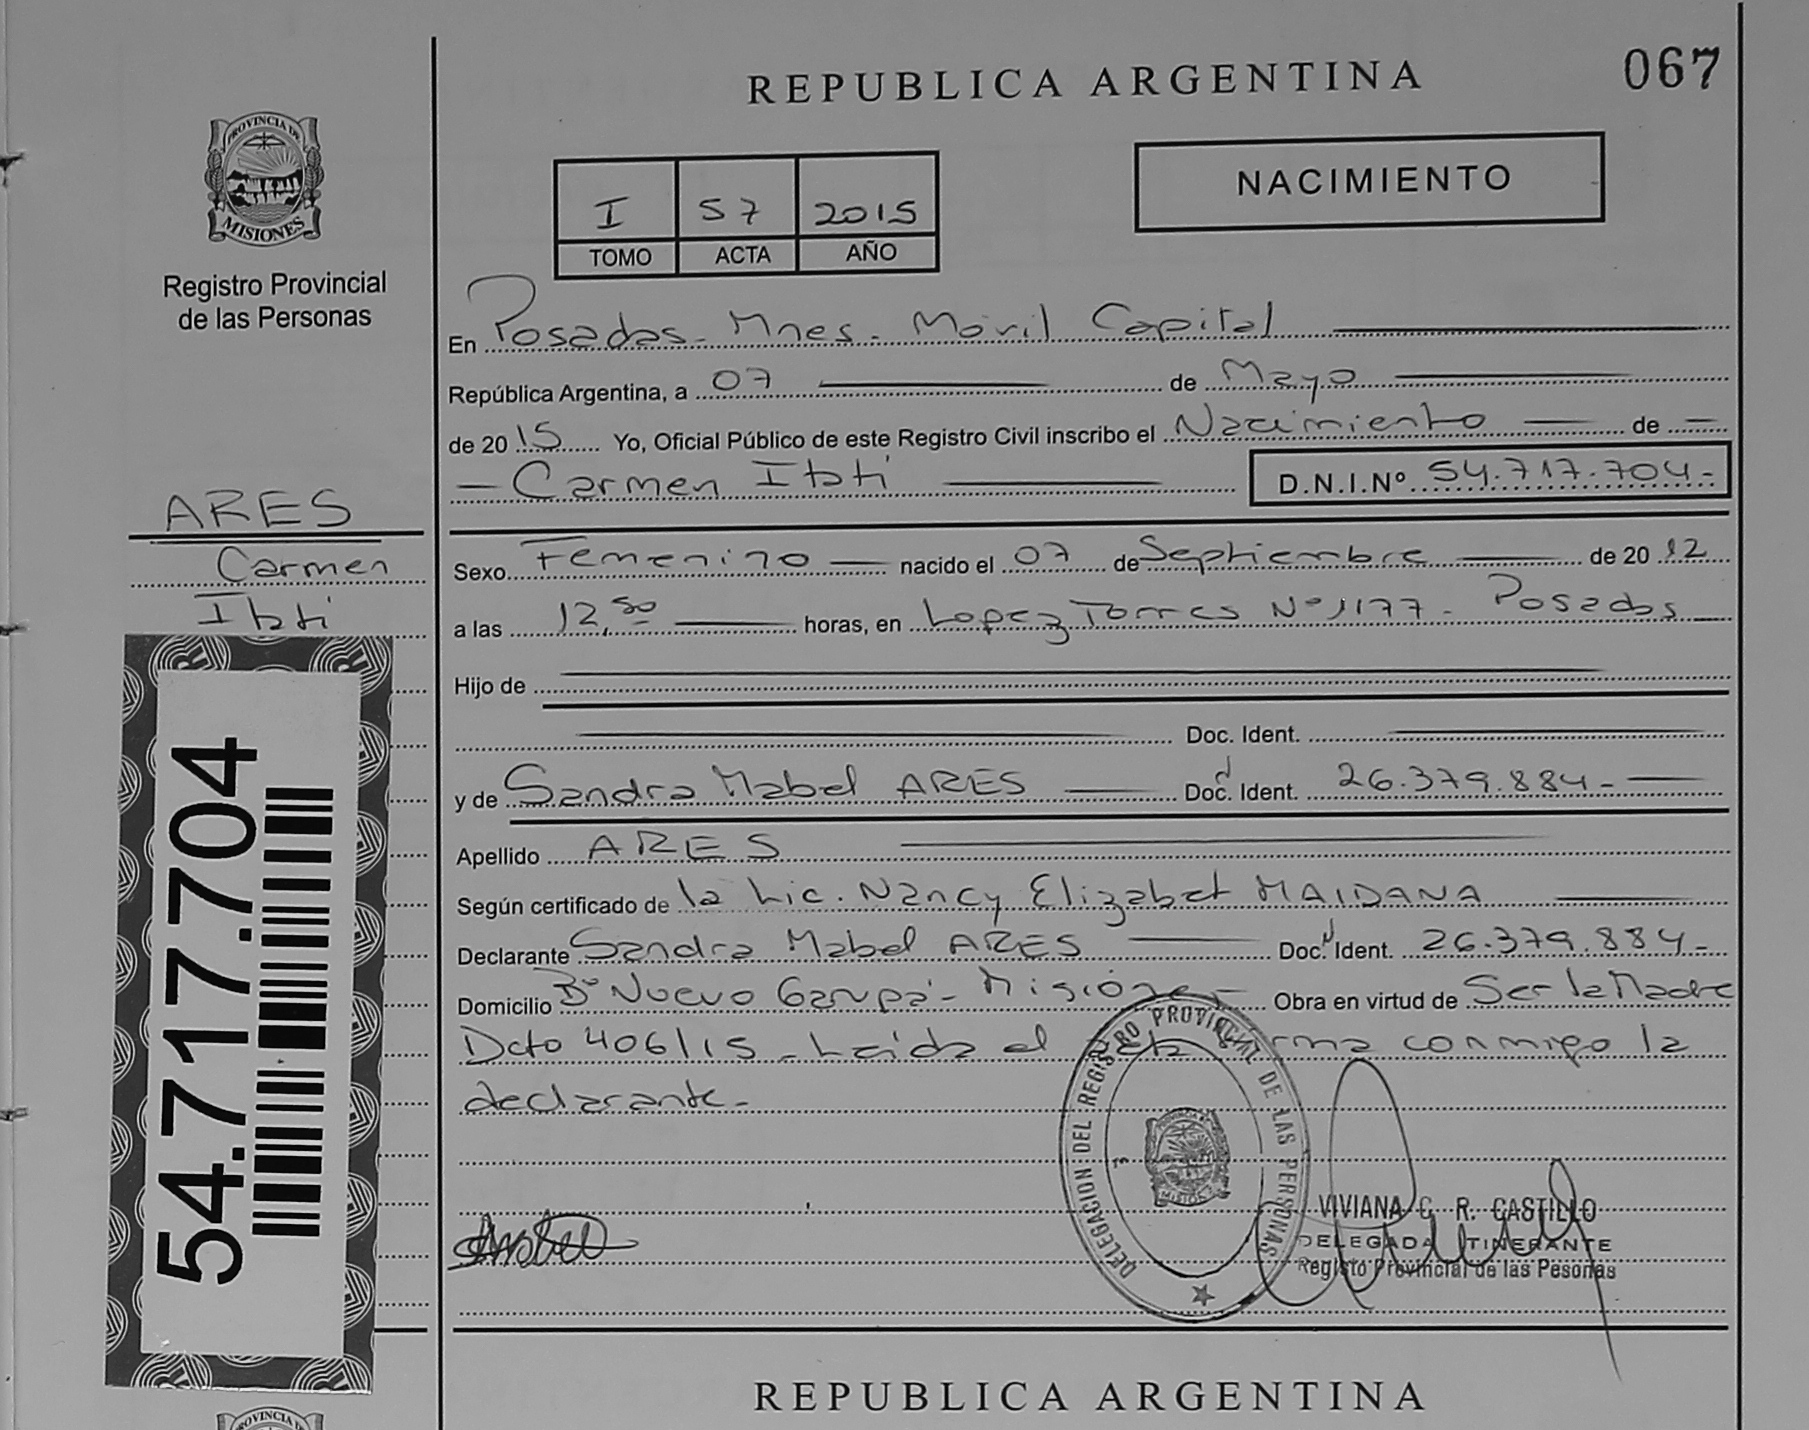 REPUBLICA ARGENTINA
067
PROVINCIA DE
MISIONES
Registro Provincial
de las Personas
NACIMIENTO
I 57 2015
TOMO ACTA AÑO
En Posadas - Mnes. Movil Capital
República Argentina, a 07 de Mayo
de 2015 Yo, Oficial Público de este Registro Civil inscribo el Nacimiento de
Carmen Itatí D.N.I.Nº 54.717.704.-
ARES
Carmen
Itatí
Sexo Femenino nacido el 07 de Septiembre de 2012
a las 12,50 horas, en Lopez Torres Nº 1177 - Posadas
Hijo de
Doc. Ident.
y de Sandra Mabel ARES Doc. Ident. 26.379.884.-
Apellido ARES
Según certificado de la Lic. Nancy Elizabet MAIDANA
Declarante Sandra Mabel ARES Doc. Ident. 26.379.884.-
Domicilio Bº Nuevo Garupá - Misiones - Obra en virtud de Ser la Madre
Dcto 406/15 - Leída el conmigo la
declarante.-
54.717.704
DELEGACION DEL REGISTRO PROVINCIAL DE LAS PERSONAS
MISIONES
VIVIANA C. R. CASTILLO
DELEGADA ITINERANTE
Registo Provincial de las Pesonas
REPUBLICA ARGENTINA
PROVINCIA DE